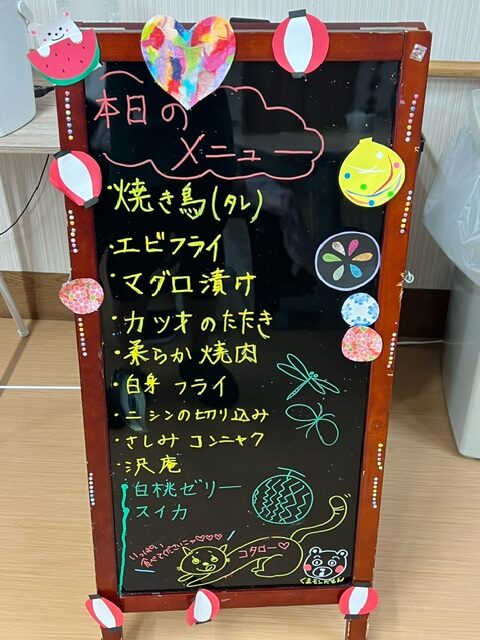 本日の
メニュー
・焼き鳥(タレ)
・エビフライ
・マグロ漬け
・カツオのたたき
・柔らか焼肉
・白身フライ
・ニシンの切り込み
・さしみコンニャク
・沢庵
白桃ゼリー
スイカ
いっぱい
食べてくださいニャ♡♡♡
コタロー♡
くまモンだもん